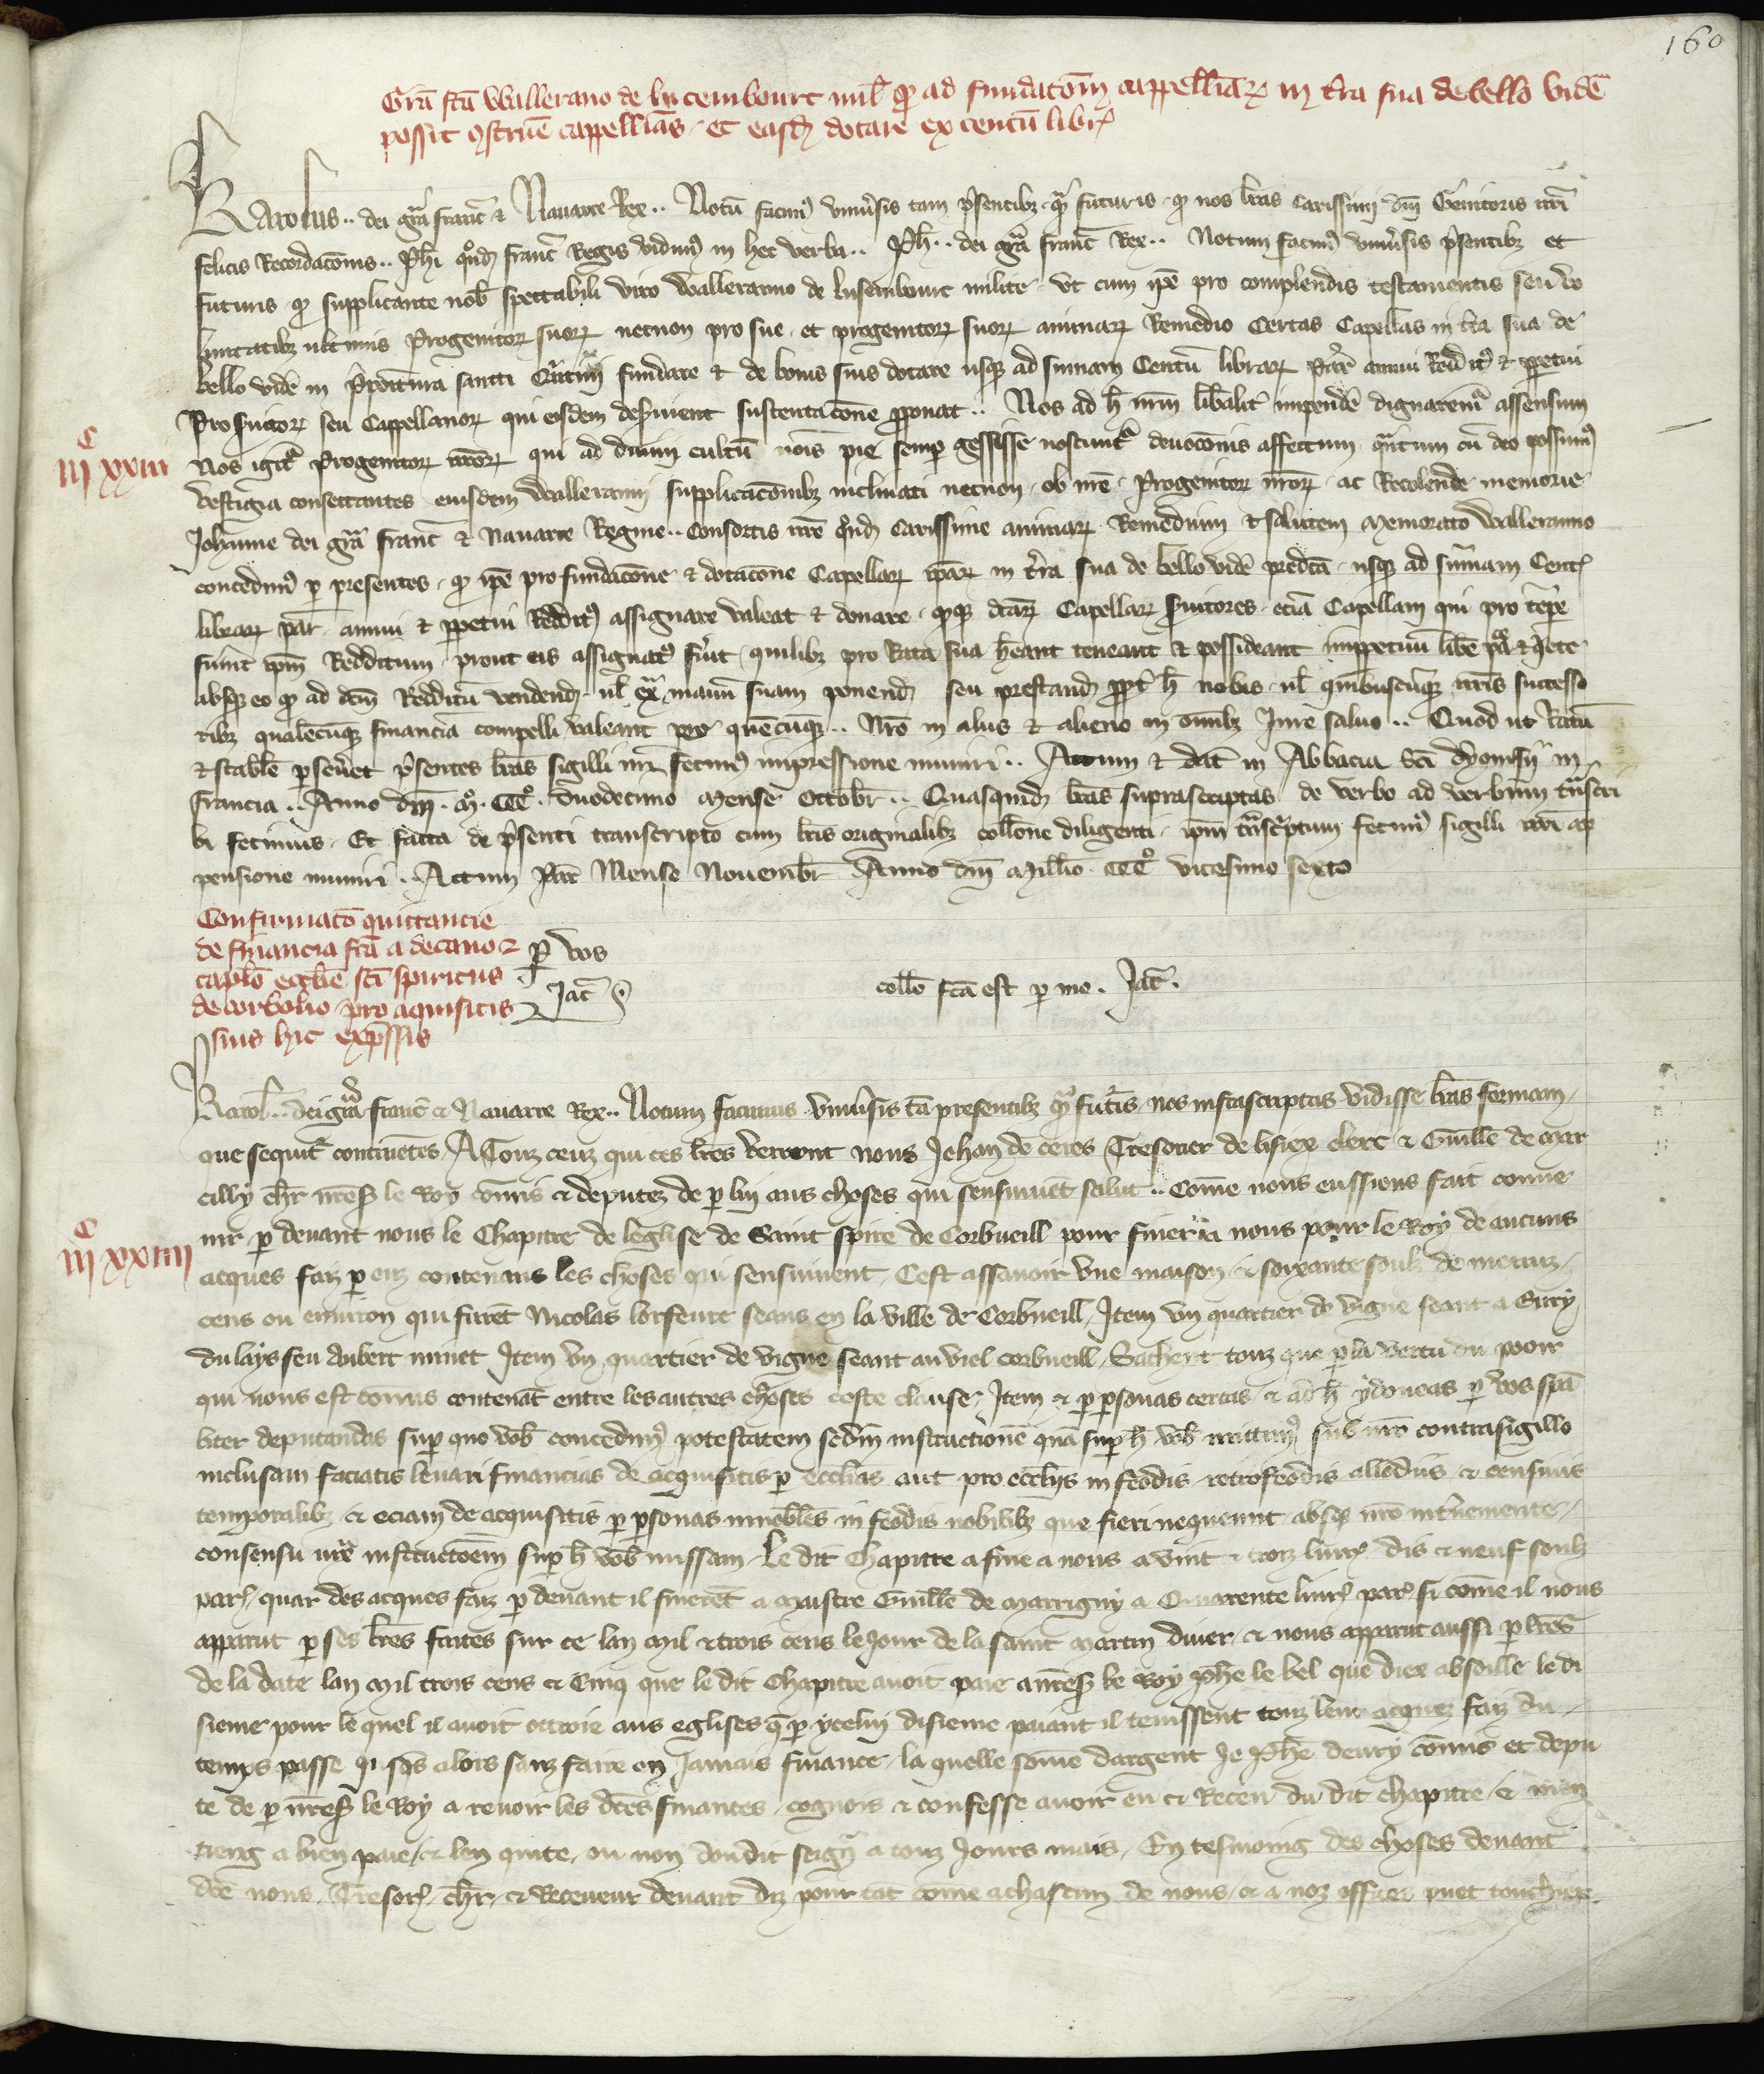 160
Gra͞ fc͞a Wallerano de lucembourc mil͞ ꝙ ad fundatōm cappelliaꝝ in t͞ra sua de bello vide͞
possit ꝯstrue͞ cappellias et easdꝫ dotare ex centū libr͛
Karolus .. dei gr͞a franc͞ & Nauarre Rex .. Notū facimꝰ vniu͛sis tam p͛sentibꝫ qᵃ futuris ꝙ nos l͞ras carissimi dn͞i Genitoris nr͞i
felicis Recordacōnis .. Ph͞i quondꝫ franc͞ Regis vidimꝰ in hec verba .. Ph͞ .. dei gr͞a franc͞ Rex .. Notum facimꝰ vniu͛sis p͛sentibꝫ et
futuris ꝙ supplicante nob͞ spectabili viro Walleranno de lusembourc milite vt cum ip͞e pro complendis testamentis seu vo
luntatibꝫ vltimis Progenitoꝝ suoꝝ necnon pro sue et progenitoꝝ suoꝝ animaꝝ Remedio Certas Capellas in t͛ra sua de
bello vide͞ in p͛poītura sancti Quintini fundare & de bonis suis dotare usqꝫ ad sum̄am Centū libraꝝ Par͛ annui Redditꝰ & ꝑpetui
Pro s͛uitoꝝ seu Cappellanoꝝ qui eisdem des͛uient sustentacōne ꝓponat .. Nos ad h͞ nr͞m lib͛alit͛ impende͞ dignarem͛ assensum
iijᶜ xxiij
Nos igit͛ Progenitoꝝ nr͞oꝝ qui ad diuini cultū nōis pie semꝑ gessisse noscunt͛ deuocōnis affectum qᵃntum cū deo possumꝰ
vestigia consectantes eiusdem Walleranni supplicacōnibꝫ inclinati necnon ob nr͞e Progenitoꝝ nr͞oꝝ ac Recolende memorie
Johanne dei gr͞a franc͞ & Nauarre Regine .. Consortis nr͞e qͦndꝫ Carissime animaꝝ Remedium & salutem Memorato Walleranno
concedimꝰ ꝑ presentes ꝙ ip͞e pro fundacōne & dotacōne Capellaꝝ ip͞aꝝ in t͛ra sua de bello vide͞ predc͞a usqꝫ ad sum̄am Cent͛
libraꝝ par͛ annui & ꝑpetui Redditꝰ assignare valeat & donare ꝙqꝫ dc͞aꝝ Capellaꝝ s͛uitores eciā Capellam qui pro t͛pe
fuint ip͞m Redditum prout eis assignatꝰ fu͛it quilibꝫ pro Rata sua he͞ant teneant & possideant imppetuū libe͞ pᵃce & qͥete
absqꝫ eo ꝙ ad dc͞m Redditū vendendꝫ ul͞ exᵃ manū suam ponendꝫ seu prestandꝫ ꝓpt͛ h͞ nobis ul͞ quibuscūqꝫ nr͞is successo
ribꝫ qualēcūqꝫ financiā compelli valeant per quēcūqꝫ .. Nr͞o in aliis & alieno in om̄ibꝫ Jure saluo .. Quod ut Ratū
& stabile perseu͛et p͛sentes l͞ras sigilli nr͞i fecimꝰ impressione muniri .. Actum & dat͞ in Abbacia Sc͞i dyonisij in
francia .. Anno dn͞i .mͦ. CCCͦ. duodecimo Mense Octobr͛ .. Quasquidꝫ l͞ras suprascriptas de verbo ad verbum tᵃnscri
bi fecimus . Et facta de p͛senti transcripto cum l͞ris originalibꝫ coll͞one diligenti ip͞m tᵃnsc͛ptum fecimꝰ sigilli nr͞i ap
pensione muniri .. Actum Par͛ Mense Nouembr͛ Anno dn͞i Mill͞io CCCͦ vicesimo sexto
Confirmatō quittancie
de financia fc͞a a decano &
capl͞o eccl͞ie sc͞i spiritus
de corbolio pro aquisitis
suis hic exp͛ssis
ꝑ vos
Jac͞
coll͞o fc͞a est ꝑ me . Jac͞ .
Karol͞ .. dei gr͞a franc͞ & Nauarre Rex .. Notum facimus vniu͛sis tā presentibꝫ qᵃ fut͛is nos infrascriptas vidisse l͞ras formam
que sequit͛ continētes / A Touz ceuz qui ces l͞res verront nous Jehan de ceres Tresorier de lisiex clerc & Guill͞e de Mar
cilly ch͞r nr͞es͛ le Roy com̄is & deputez de ꝑ luy aus choses qui sensiuiuēt salut .. Come nous eussiens fait conue
nir ꝑ deuant nous le Chapitre de leglise de Saint spire de Corbueill pour finer a nous pour le Roy de aucuns
iijᶜ xxiiij
acques faiz ꝑ euz contenans les choses qui sensiuuent / Cest assauoir vne maison & soixante soulz de menuz
cens ou enuiron qui furēt Nicolas lorfeure seans en la ville de Corbueill / Item vn quartier de vigne seant a Eury
du lays feu Aubert minet Item vn quartier de vigne seant au viel corbueill / Sachent touz que ꝑ la vertu du pooir
qui nous est comis contenāt entre les autres choses ceste clause / Item & ꝑ ꝑsonas certas & ad h͞ ydoneas ꝑ vos spāl
liter deputandas suꝑ quo vob͞ concedimꝰ potestatem scdm̄ instructionē quā suꝑ h͞ vob͞ mittimꝰ sub nr͞o contrasigillo
inclusam faciatis leuari financias de acquisitis ꝑ eccl͞ias aut pro eccl͞iis in feodis retrofeodis allodiis & censiuis
temporalibꝫ & eciam de acquisitis ꝑ ꝑsonas innobiles in feodis nobilibꝫ que fieri nequeunt absqꝫ nr͞o int͛ueniente
consensu iuxᵃ instructoēm suꝑ h͞ vob͞ missam / Le dit Chapitre a fine a nous a vint & troiz liur͛ dis & neuf soulz
par͛ / quar des acques faiz ꝑ deuant il finerēt a Maistre Guill͞e de Marrigny a Quarente liur͛ par͛ si come il nous
apparut ꝑ ses l͞res faites sur ce lan Mil & trois cens le Jour de la saint Martin diuer / & nous apparut aussi ꝑ l͞res
de la date lan Mil trois cens & Cinq que le dit Chapitre auoit paie a nr͞es͛ le Roy Ph͞e le bel que diex absoille le di
sieme pour le quel il auoit ottroie aus eglises q̄ ꝑ ycelui disieme paiant il tenissent touz leur acquez faiz du
temps passe Jusques alors sanz faire en Jamais finance / la quelle some dargent Je Ph͞e deury com̄is et depu
te de ꝑ nr͞es͛ le Roy a reuoir les dc͞es finances cognois & confesse auoir eu & Receu du dit chapitre / & men
tieng a bien paie / & len quite ou non doudit seignʳ a touz Jours mais / En tesmoing des choses deuant
dc͞e nous Tresor͛ / ch͞r / & Receueur deuant diz pour tāt come a chascun de nous / & a noz offices puet touchier